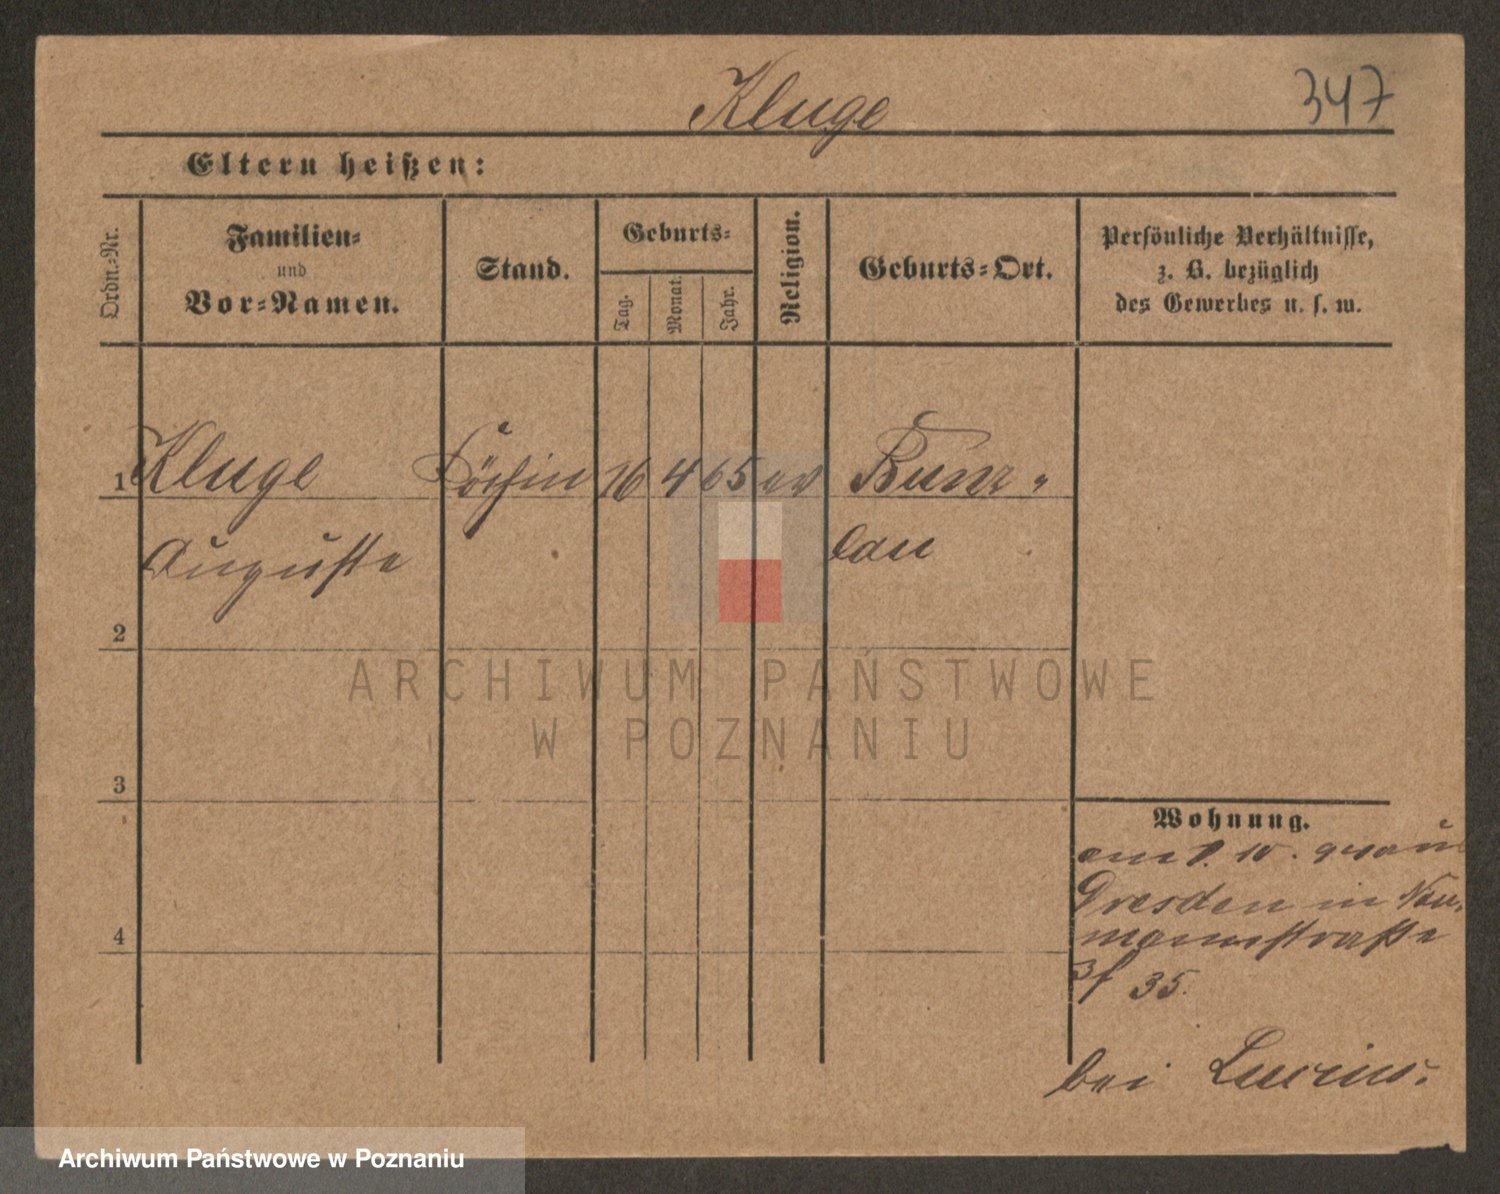 Kluge
347
Eltern heißen:
Ordn.-Nr.
Familien-
und
Vor-Namen.
Stand.
Geburts-
Tag.
Monat.
Jahr.
Religion.
Geburts-Ort.
Persönliche Verhältnisse,
z. B. bezüglich
des Gewerbes u. s. w.
1 Kluge Köchin 16 4 65 ev Bunz-
Auguste lau
2
3
4
Wohnung.
am 1. 10.
Dresden in Nau-
mannstraße
35.
bei
ARCHIWUM PAŃSTWOWE
W POZNANIU
Archiwum Państwowe w Poznaniu